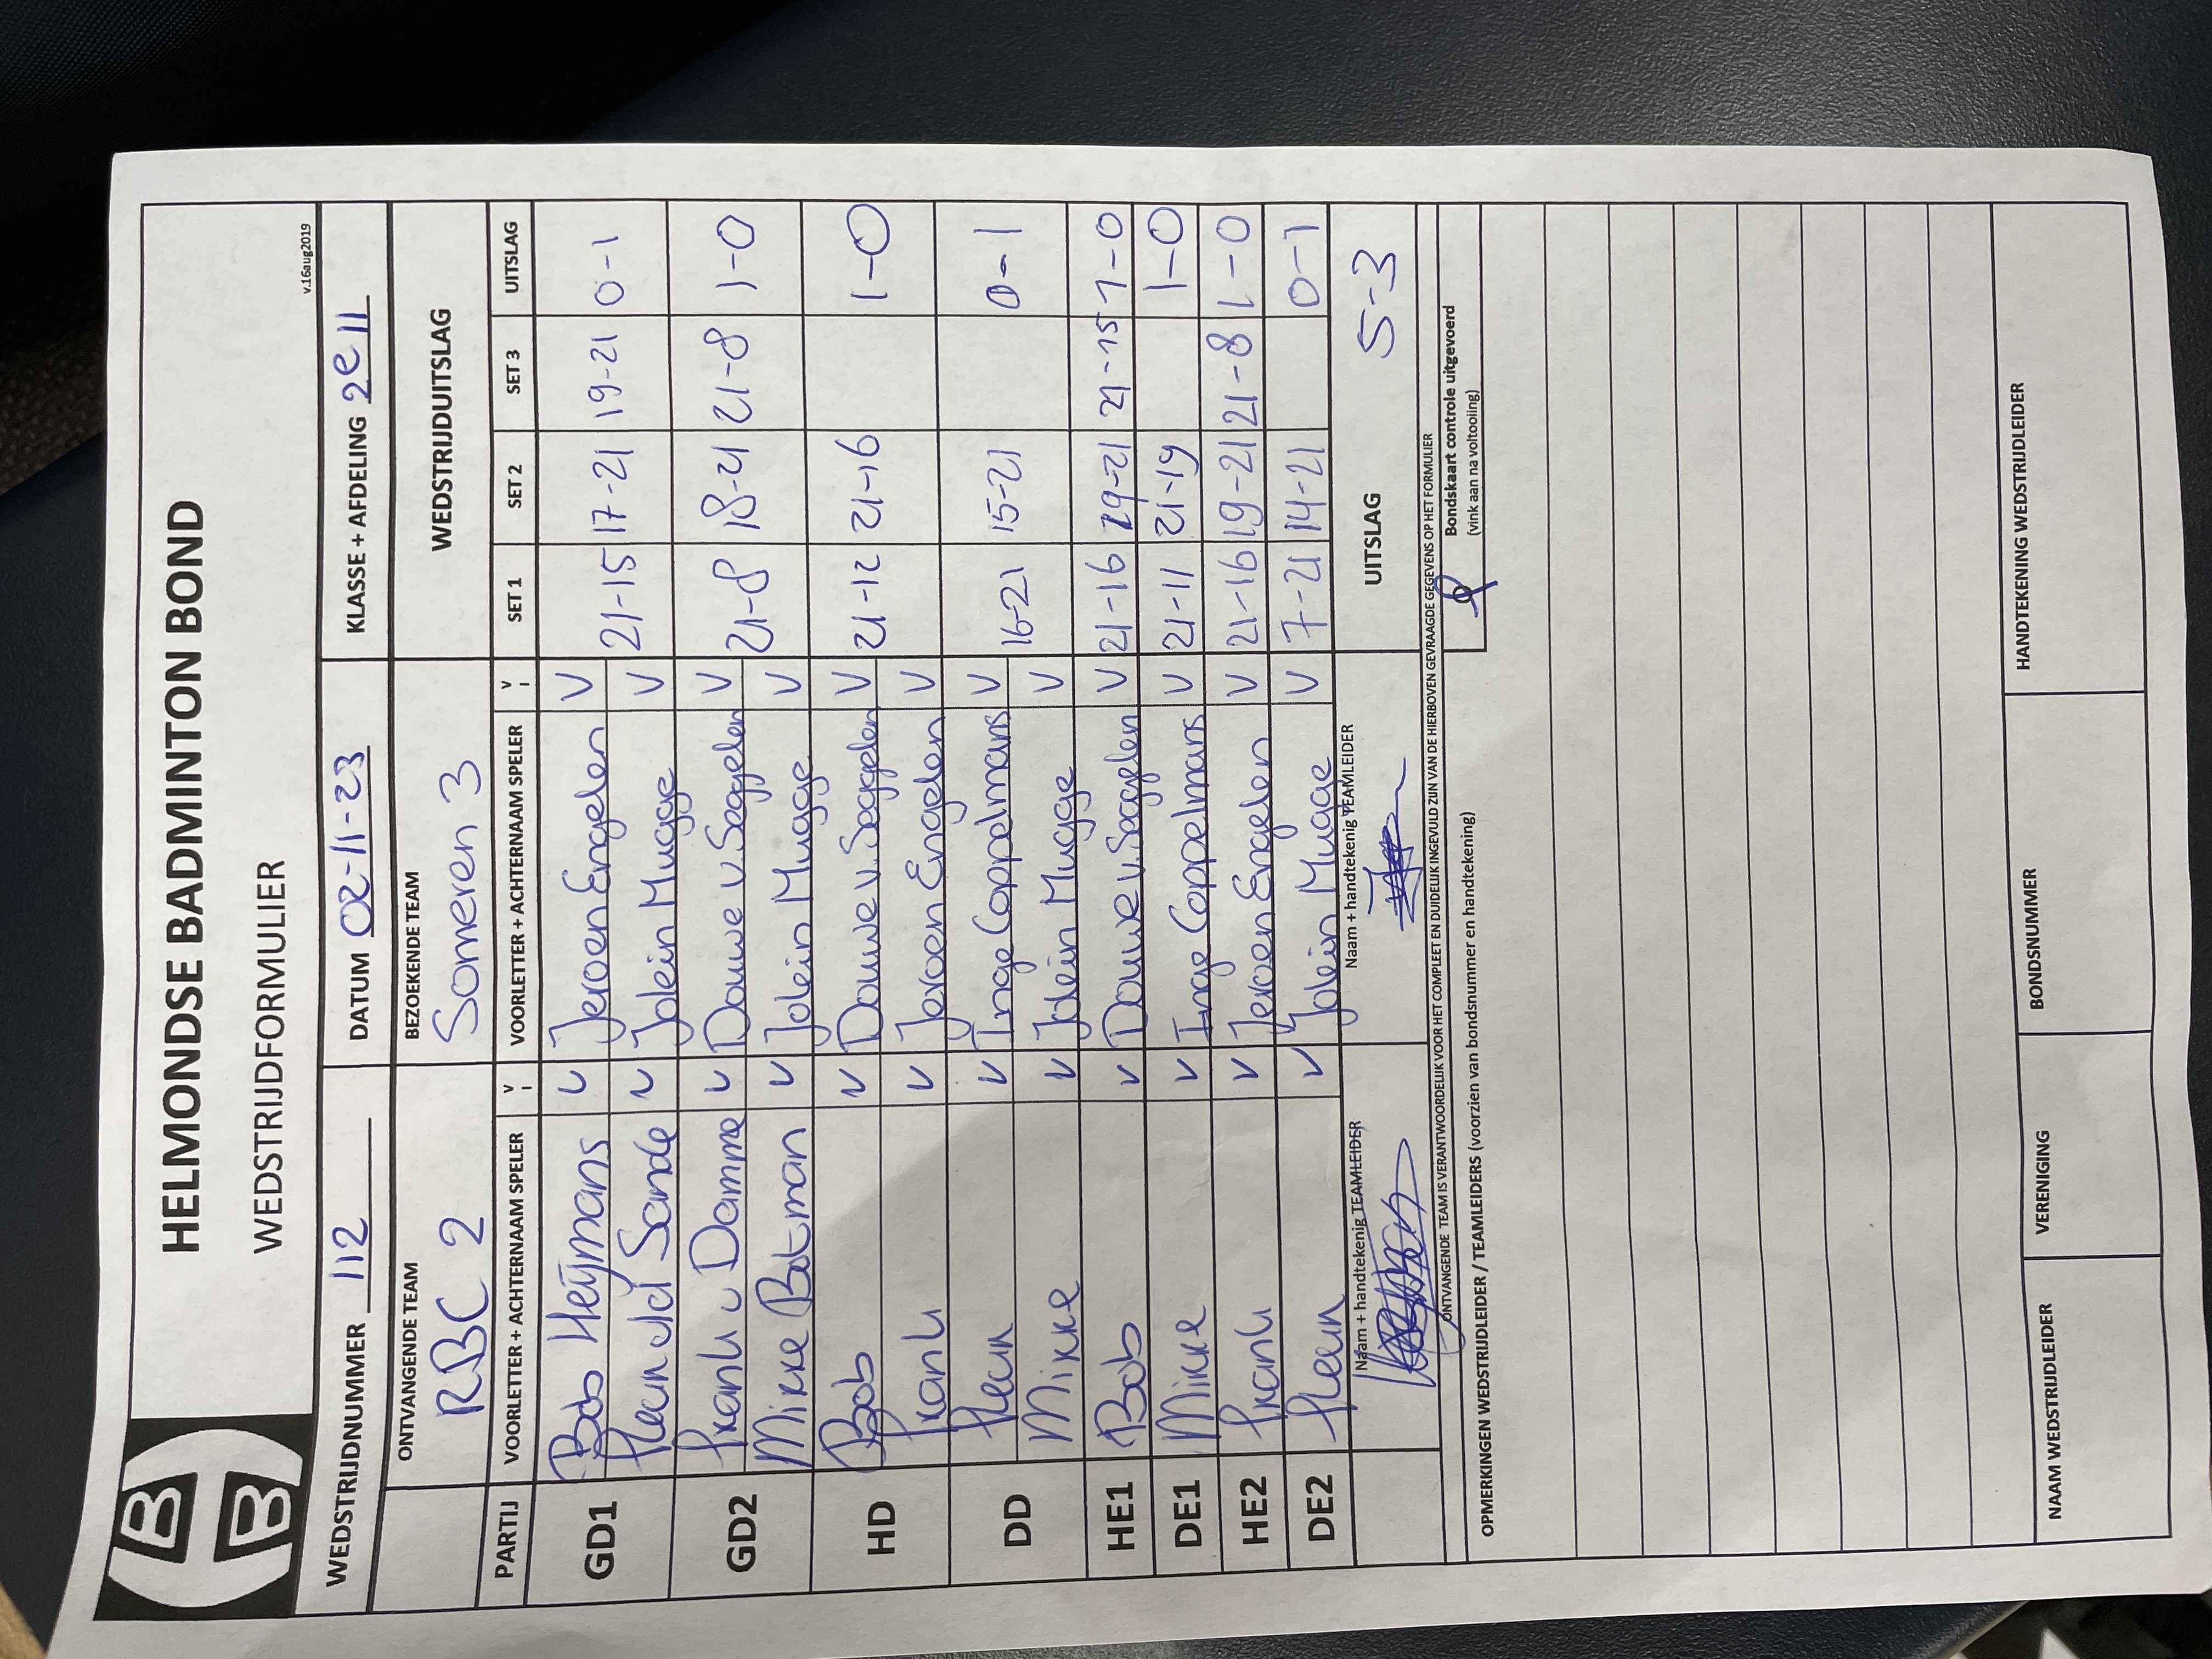 HELMONDSE BADMINTON BOND
WEDSTRIJDFORMULIER
v.16aug2019
WEDSTRIJDNUMMER 112 DATUM 02-11-23 KLASSE + AFDELING 2e 11
ONTVANGENDE TEAM BEZOEKENDE TEAM WEDSTRIJDUITSLAG
RBC 2 Someren 3
PARTIJ VOORLETTER + ACHTERNAAM SPELER V VOORLETTER + ACHTERNAAM SPELER V SET 1 SET 2 SET 3 UITSLAG
GD1 Bob Heijmans V Jeroen Engelen V 21-15 17-21 19-21 0-1
vd Sande V Jolein Mugge V
GD2 Frank v Damme V Douwe v. Seggelen V 21-8 18-21 21-8 1-0
Mirke Botman V Jolein Mugge V
HD Bob V Douwe v. Seggelen V 21-12 21-16 1-0
Frank V Jeroen Engelen V
DD V Inge Coppelmans V 16-21 15-21 0-1
Mirke V Jolein Mugge V
HE1 Bob V Douwe v. Seggelen V 21-16 19-21 21-15 1-0
DE1 Mirke V Inge Coppelmans V 21-11 21-19 1-0
HE2 Frank V Jeroen Engelen V 21-16 19-21 21-8 1-0
DE2 V Jolein Mugge V 7-21 14-21 0-1
Naam + handtekenig TEAMLEIDER Naam + handtekenig TEAMLEIDER UITSLAG 5-3
ONTVANGENDE TEAM IS VERANTWOORDELIJK VOOR HET COMPLEET EN DUIDELIJK INGEVULD ZIJN VAN DE HIERBOVEN GEVRAAGDE GEGEVENS OP HET FORMULIER
Bondskaart controle uitgevoerd
(vink aan na voltooling)
OPMERKINGEN WEDSTRIJDLEIDER / TEAMLEIDERS (voorzien van bondsnummer en handtekening)
NAAM WEDSTRIJDLEIDER VERENIGING BONDSNUMMER HANDTEKENING WEDSTRIJDLEIDER